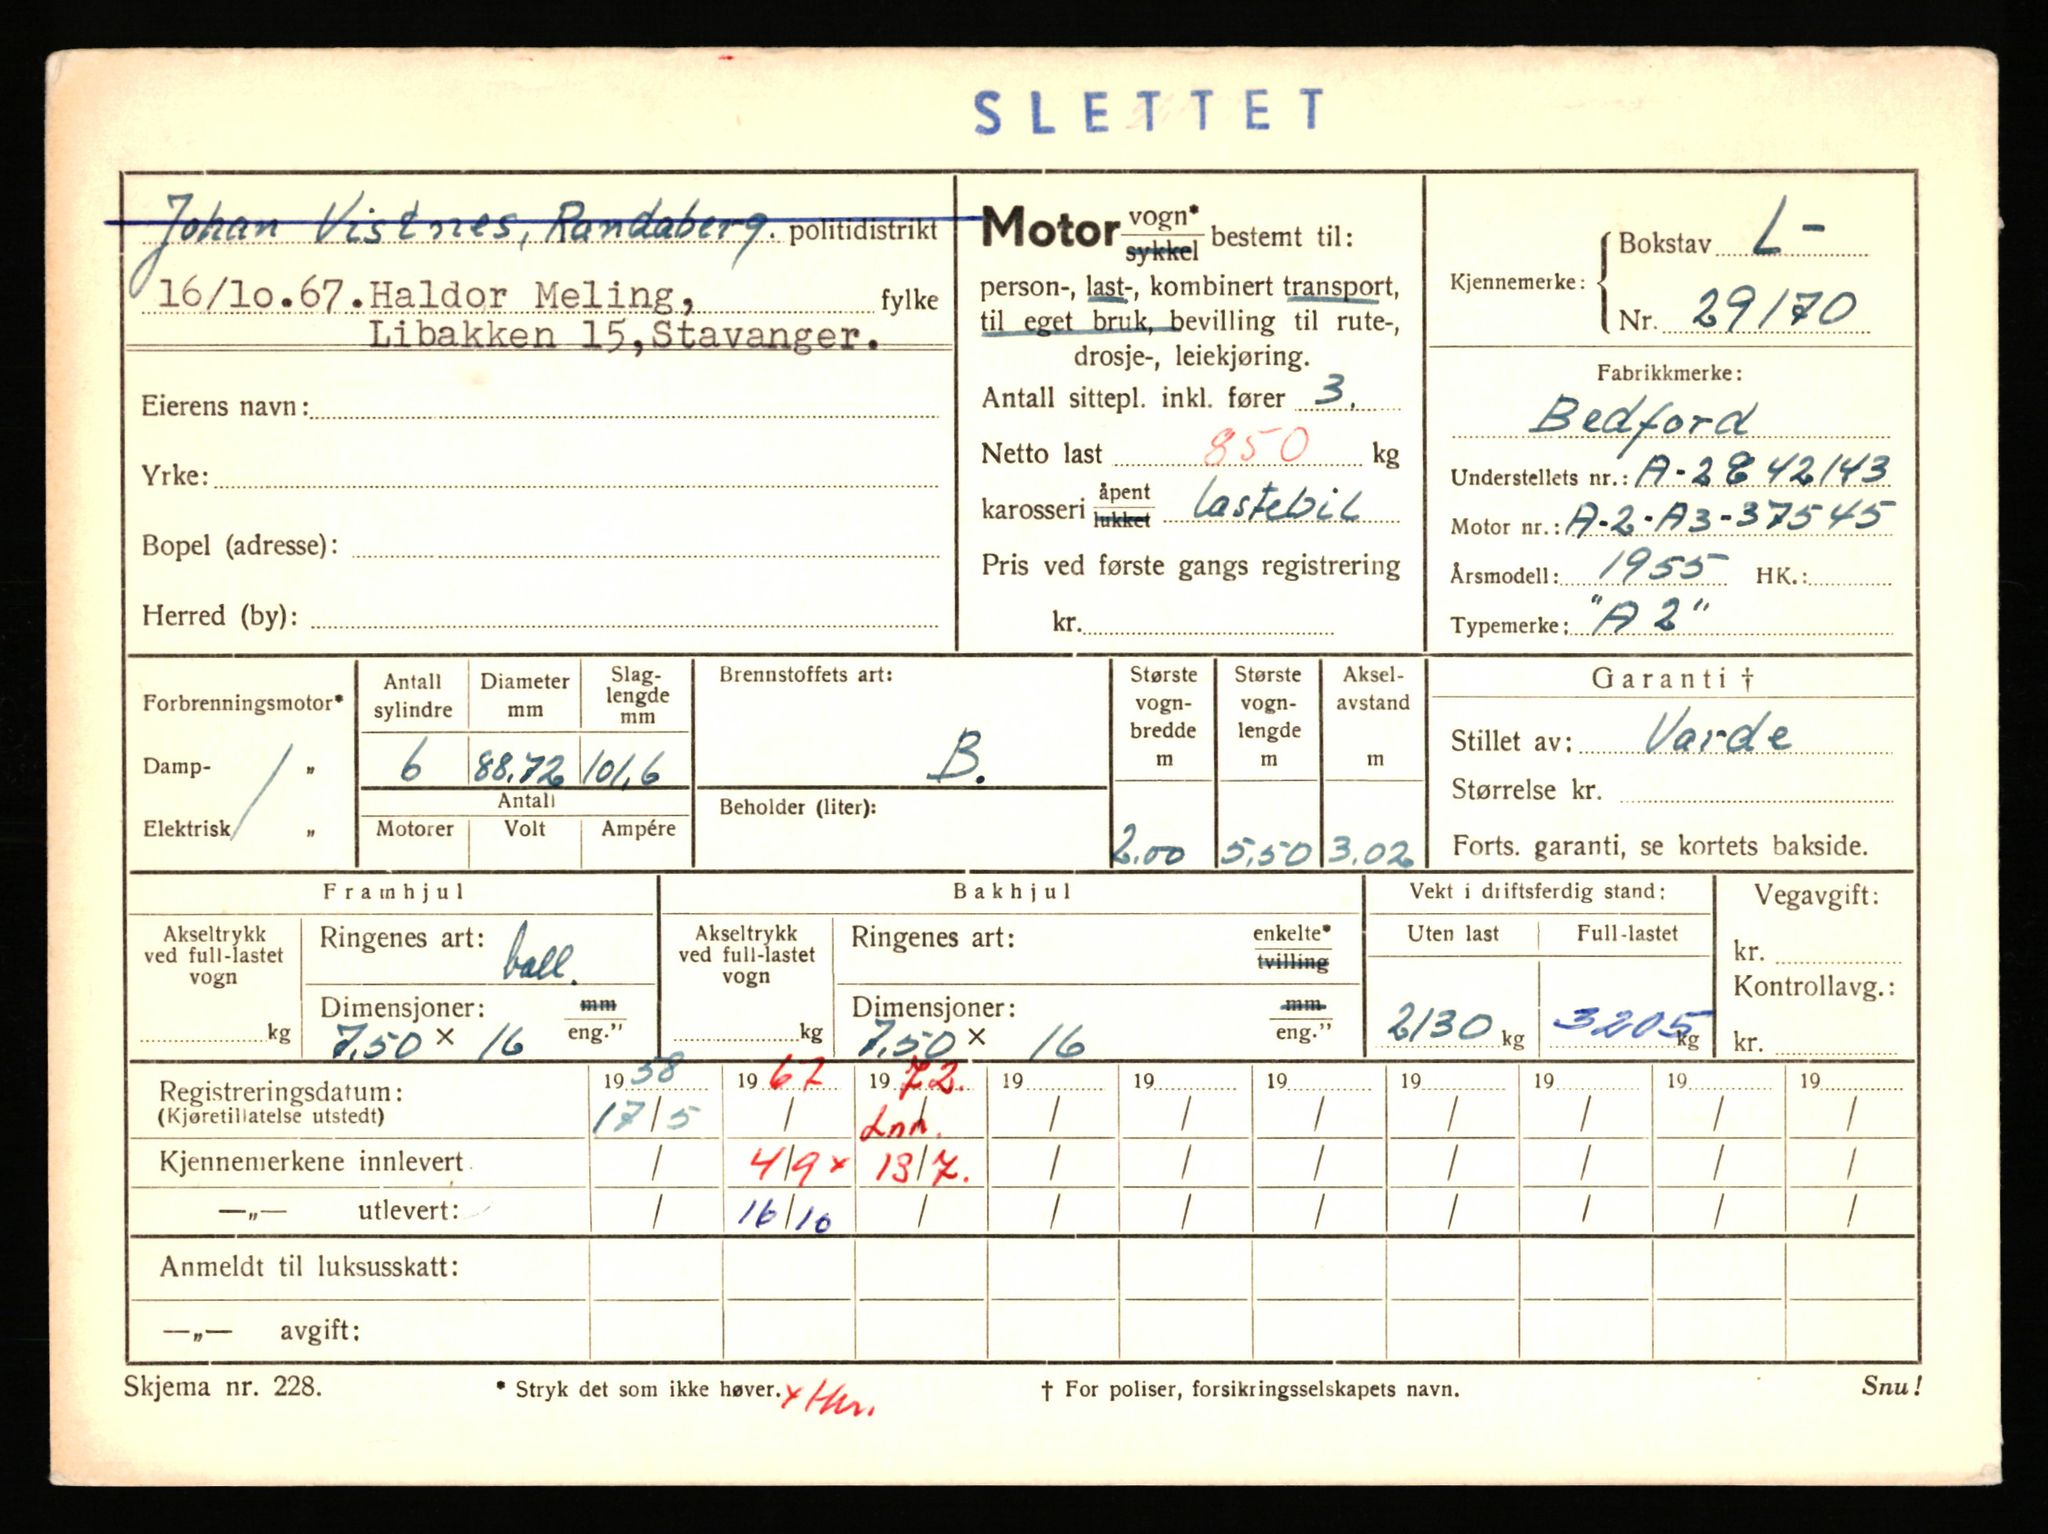 SLETTET
Johan Vistnes, Randaberg. politidistrikt
16/10.67. Haldor Meling, fylke
Libakken 15, Stavanger.
Eierens navn:
Yrke:
Bopel (adresse):
Herred (by):
Motor vogn* sykkel bestemt til:
person-, last-, kombinert transport,
til eget bruk, bevilling til rute-,
drosje-, leiekjøring.
Antall sittepl. inkl. fører 3.
Netto last 850 kg
karosseri åpent lukket lastebil
Pris ved første gangs registrering
kr.
Kjennemerke: Bokstav L-
Nr. 29170
Fabrikkmerke:
Bedford
Understellets nr.: A-2E 42143
Motor nr.: A-2-A3-37545
Årsmodell: 1955 HK.:
Typemerke: "A2"
Forbrenningsmotor*
Damp- „
Elektrisk „
Antall sylindre Diameter mm Slag-lengde mm
6 88,72 101,6
Antall
Motorer Volt Ampére
Brennstoffets art:
B.
Beholder (liter):
Største vogn-bredde m
2.00
Største vogn-lengde m
5.50
Aksel-avstand m
3.02
Garanti †
Stillet av: Varde
Størrelse kr.
Forts. garanti, se kortets bakside.
Framhjul
Akseltrykk ved full-lastet vogn
kg
Ringenes art: ball.
Dimensjoner: mm
7,50 × 16 eng."
Bakhjul
Akseltrykk ved full-lastet vogn
kg
Ringenes art: enkelte* tvilling
Dimensjoner: mm
7,50 × 16 eng."
Vekt i driftsferdig stand:
Uten last Full-lastet
2130 kg 3205 kg
Vegavgift:
kr.
Kontrollavg.:
kr.
Registreringsdatum: 1958 1967 1972. 19 19 19 19 19 19 19
(Kjøretillatelse utstedt) 17/5 / / / / / / / / /
Lnn.
Kjennemerkene innlevert / 4/9 x 13/7. / / / / / / /
—„— utlevert: / 16/10 / / / / / / / /
Anmeldt til luksusskatt:
—„— avgift:
Skjema nr. 228. * Stryk det som ikke høver. x † For poliser, forsikringsselskapets navn. Snu!